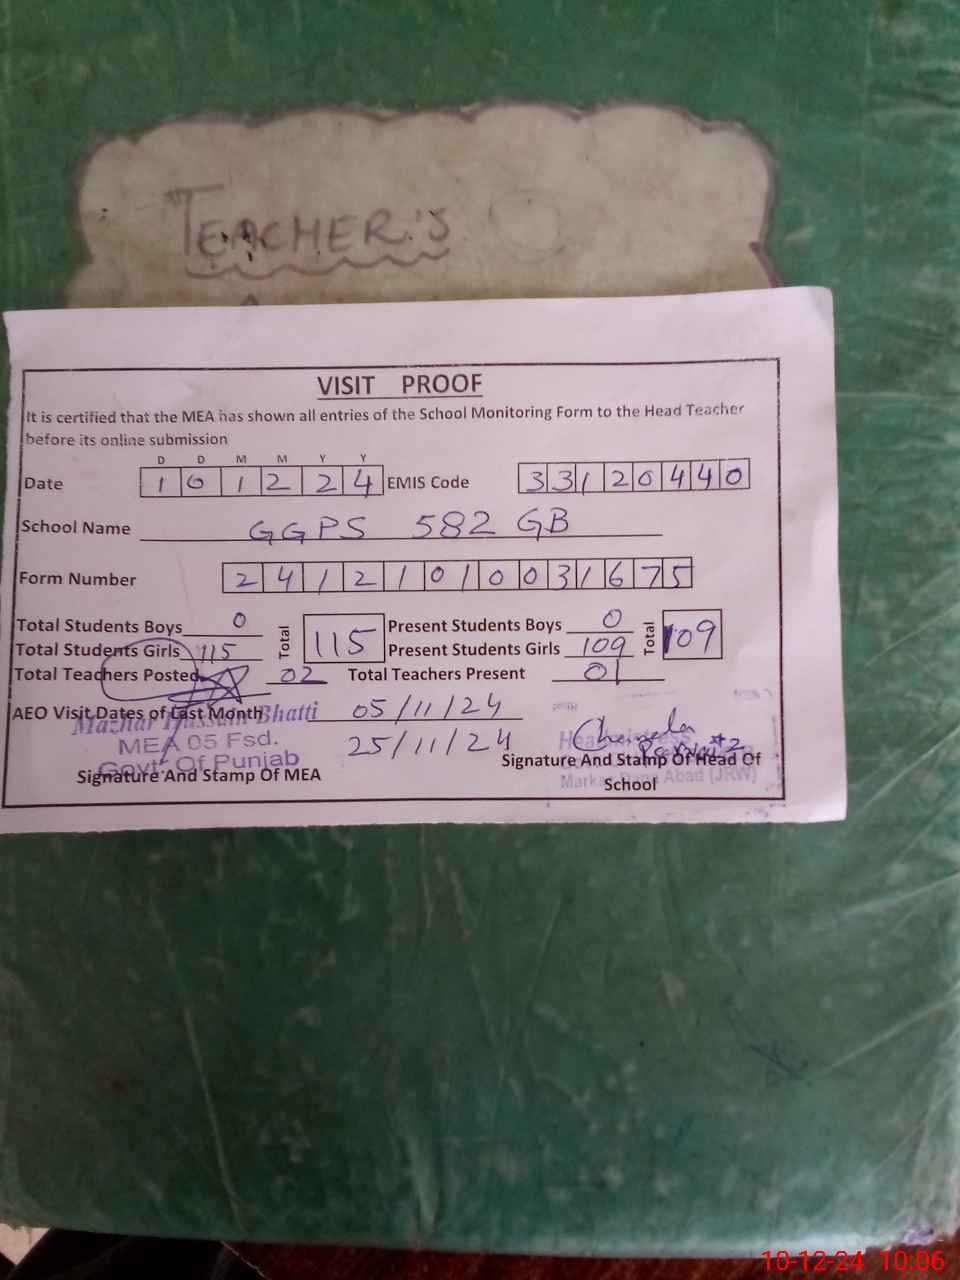 TEACHER'S
VISIT PROOF
It is certified that the MEA has shown all entries of the School Monitoring Form to the Head Teacher
before its online submission
D D M M Y Y
Date 1 0 1 2 2 4 EMIS Code 3 3 1 2 0 4 4 0
School Name GGPS 582 GB
Form Number 2 4 1 2 1 0 1 0 0 3 1 6 7 5
Total Students Boys 0 Total 115 Present Students Boys 0 Total 109
Total Students Girls 115 Present Students Girls 109
Total Teachers Posted 02 Total Teachers Present 01
AEO Visit Dates of Last Month 05/11/24
Mazhar Hussain Bhatti
25/11/24
MEA 05 Fsd.
Govt. Of Punjab
Signature And Stamp Of MEA
Signature And Stamp Of Head Of
School
Abad (JRW)
10-12-24 10:06